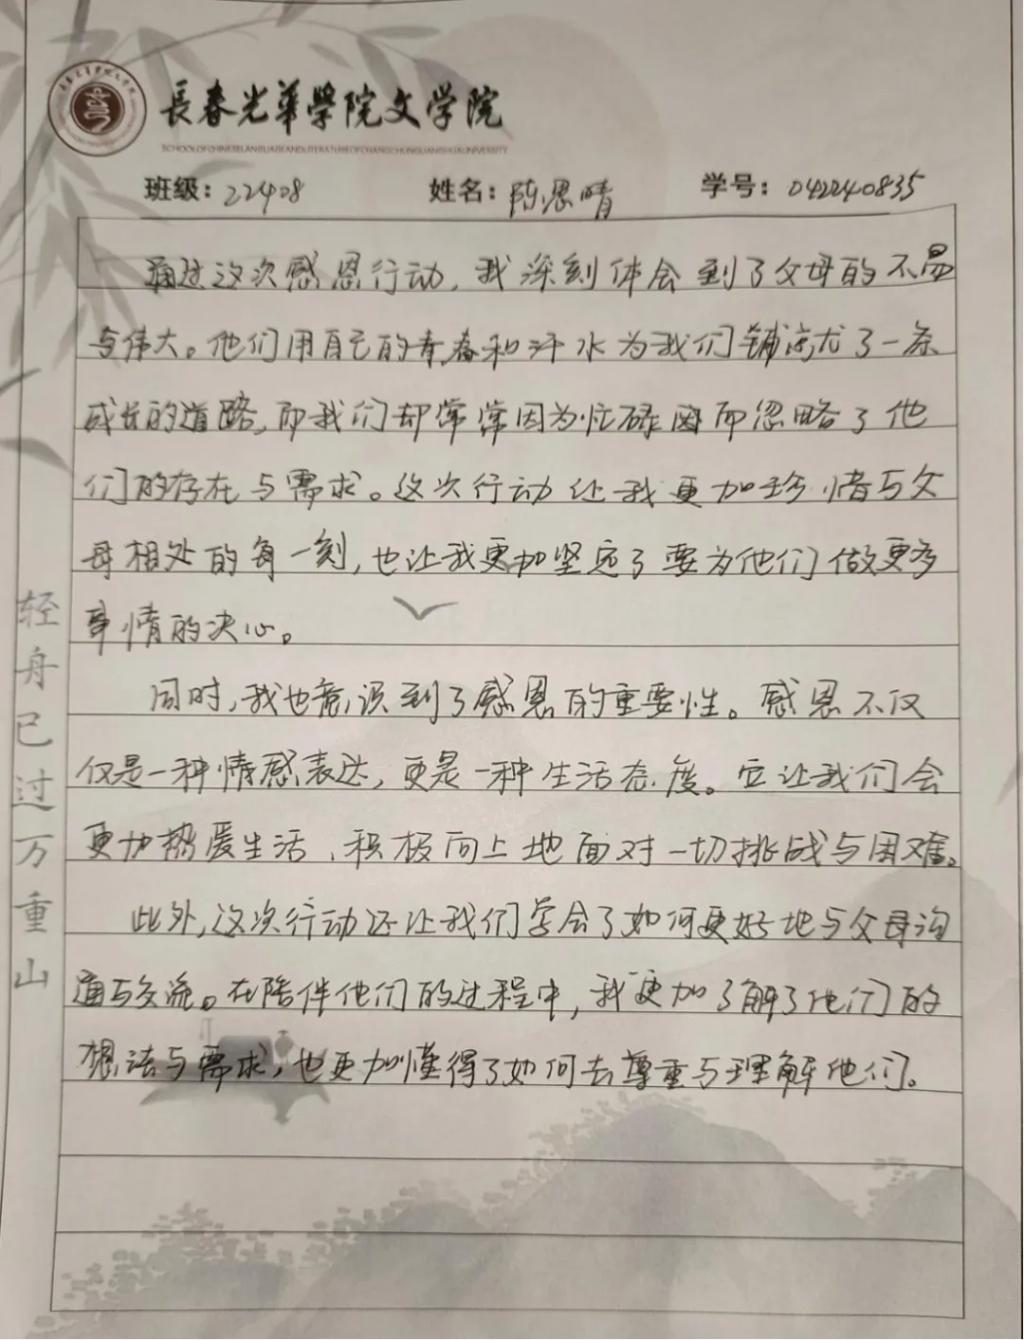 長春光華學院文学院
SCHOOL OF CHINESE LANGUAGE AND LITERATURE OF CHANGCHUN GUANGHUA UNIVERSITY
班级：22408 姓名：陈思晴 学号：042240835
通过这次感恩行动，我深刻体会到了父母的不易
与伟大。他们用自己的青春和汗水为我们铺就了一条
成长的道路，而我们却常常因为忙碌因而忽略了他
们的存在与需求。这次行动让我更加珍惜与父
母相处的每一刻，也让我更加坚定了要为他们做更多
事情的决心。
同时，我也意识到了感恩的重要性。感恩不仅
仅是一种情感表达，更是一种生活态度。它让我们会
更加热爱生活，积极向上地面对一切挑战与困难。
此外，这次行动还让我们学会了如何更好地与父母沟
通与交流。在陪伴他们的过程中，我更加了解了他们的
想法与需求，也更加懂得了如何去尊重与理解他们。
轻舟已过万重山